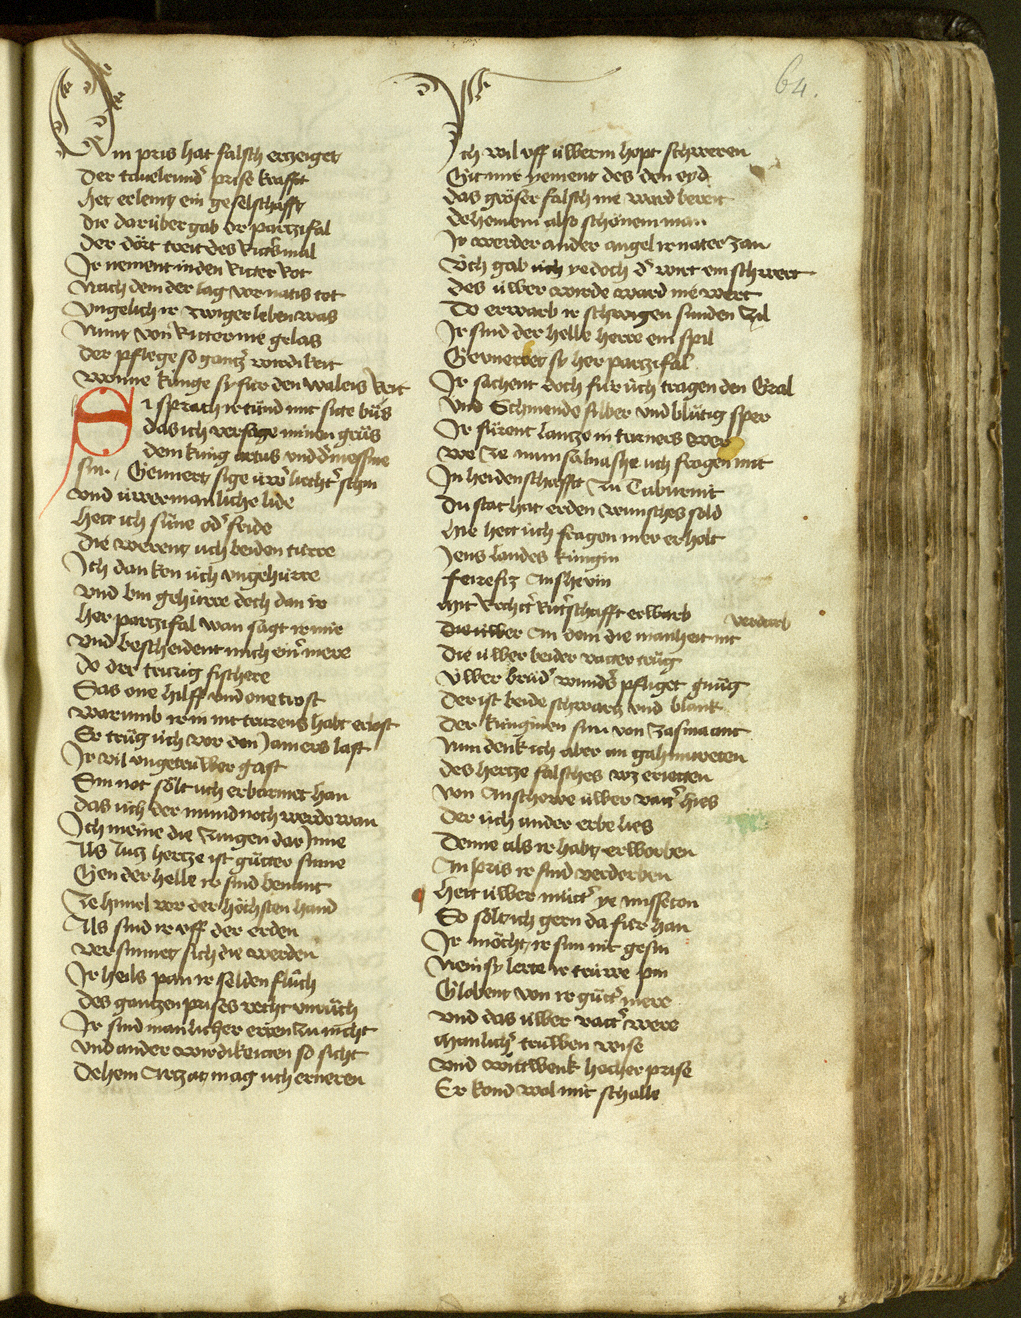 64.
Ein pris hat falsch erzeiget
Der tauelrund' prise krafft
Het erlemt ein geselschafft
Die darüber gab her parzifal
Der dört treit des Ritters mal
Ir nement in den Ritter Rot
Nach dem der lag vor nantis tot
Vngelich ir zwiger leben was
Nunt von Ritter nie gelas
Der pflege so gantz wirdikeit
Von me kunge sy fur den waleis Reit
SI sprach ir tünd mit site büs
das ich versage minen grüs
dem kung artus vnd d' messnie
sin. Geunert sige üwer liecht' schin
vnd üwer manliche lide
Hett ich süne od' fride
Die werent uch beiden türre
Ich dunken üch vngehürre
vnd bin gehürre doch dan ir
Her parzifal wan sagt ir mir
vnd bescheident mich einr mere
Do der trurig fischere
Sas one hilff vnd one trost
warumb ir in nit trurens habt erlost
Er trüg üch vor den Jamers last
Ir vil vngetrüwer gast
Sin not sölt uch erbarmet han
das üch der mund noch werde wan
Ich meine die Zungen dar Inne
Als Jutz hertze ist gütter sinne
Gen der helle ir sind benant
Ze himel vor der höchsten hand
Als sind ir vff der erden
versinnet sich die werden
Ir heils pan ir selden flüch
Des gantzen prises recht vnrüch
Ir sind manlicher erren zu nicht
vnd ander wirdikeiten so sicht
Dehein Artzat mag uch erneren
Ich wil vff üwerm hopt schweren
Git mir yement des den eyd
das gröser falsch nie ward bereit
deheinem also schönem man
Ir werder ander angel ir nater zan
Üch gab üch ye doch d' wirt ein schwert
des üwer wirde ward nie wert
Do erwarb ir schwigen sünden zil
Ir sind der helle herre ein spil
Geunerter sy her parzifal
Ir sachent doch fur üch tragen den Gral
Vnd Schnidende silber vnd blütig sper
Ir fürent lantze in turners wer
we ze munsaluashe uch fragen mit
In heidenschafft zu Tabrunit
Du stat hat erden wunsches sold
Hie hett üch fragen mer erholt
Jens landes künigin
feirefiz Anshevin
Mit Recht' Rit'schafft erwarb
Die üwer An dem die manheit nit verdarb
Die üwer beider vatter trüg
Üwer brüd' wund's pfliget gnüg
Der ist beide schwartz vnd blank
Der künginen sun von zasmanit
Nun denk ich aber an gahmureten
des hertze falsches wz erietten
von Anschowe üwer vatt' hies
der üch ander erbe lies
Denne als ir habt erworben
An pris ir sind verderben
Hett üwer mütt' ye missetan
So sölt ich gern da fur han
Ir möcht ir sun nit gesin
Nein sy lerte ir trürre pin
Globent von ir gütt' mere
vnd das üwer vatt' were
Manlich' truwen wise
vnd wittwenk hocher prise
Er kond wol mit schalle